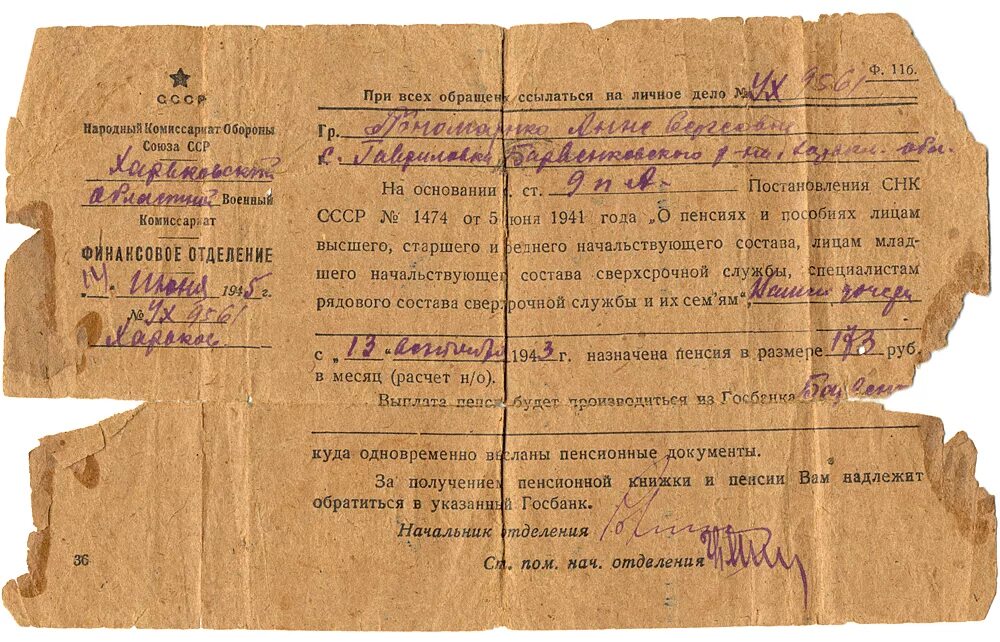 СССР
Народный Комиссариат Обороны
Союза ССР
Харьковский
Областной Военный
Комиссариат
ФИНАНСОВОЕ ОТДЕЛЕНИЕ
"14" Июня 1945 г.
№ Ух 9561
Харьков
Ф. 116.
При всех обращен ссылаться на личное дело № Ух 9561
Гр. Пономаренко Анне Сергеевне
с. Гавриловка, Барвенковского р-на, Харьк. обл.
На основании ст. 9 п А. Постановления СНК
СССР № 1474 от 5 июня 1941 года „О пенсиях и пособиях лицам
высшего, старшего и среднего начальствующего состава, лицам млад-
шего начальствующег состава сверхсрочной службы, специалистам
рядового состава сверхсрочной службы и их сем'ям" дочери
с „13" сентября 1943 г. назначена пенсия в размере 173 руб.
в месяц (расчет н/о).
Выплата пенси будет производиться из Госбанка
куда одновременно высланы пенсионные документы.
За получением пенсионной книжки и пенсии Вам надлежит
обратиться в указанный Госбанк.
Начальник отделения
Ст. пом. нач. отделения
36